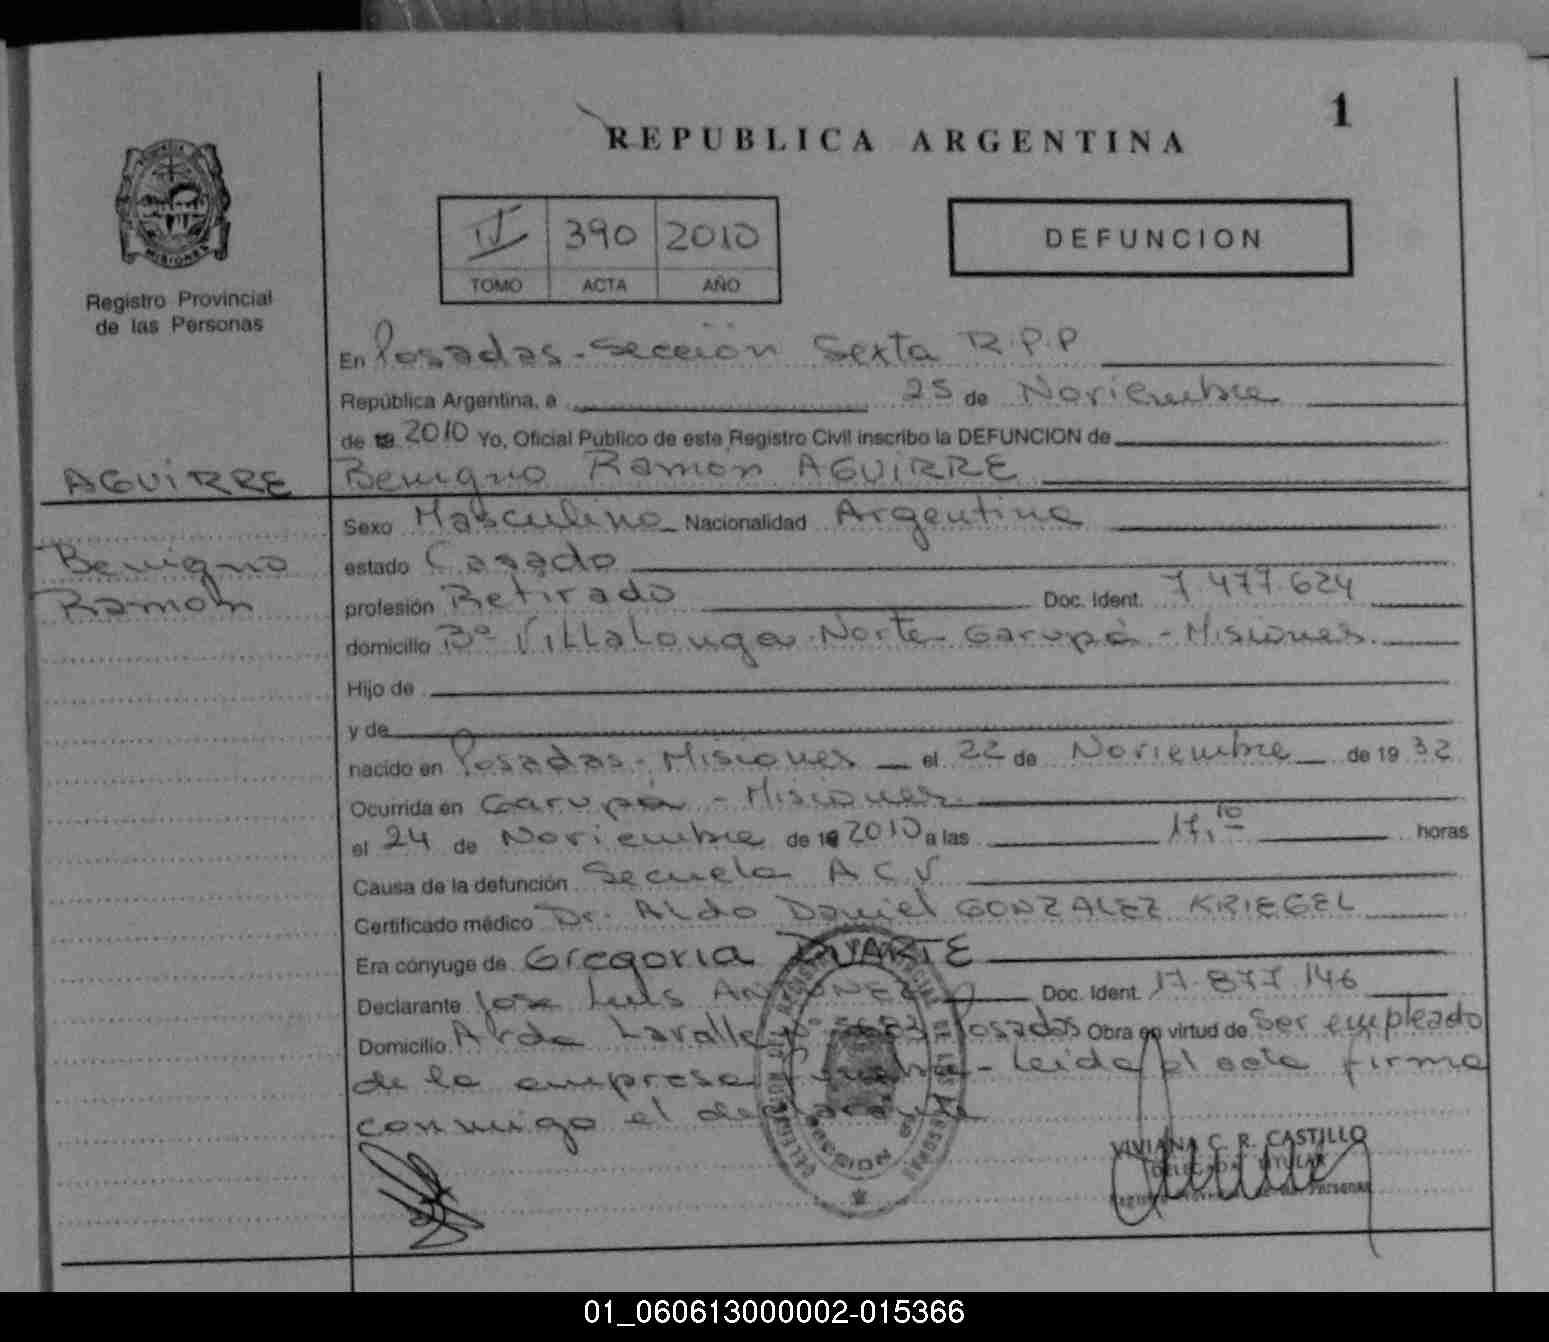 1
REPUBLICA ARGENTINA
MISIONES
Registro Provincial
de las Personas
IV 390 2010
TOMO ACTA AÑO
DEFUNCION
En Posadas - Sección Sexta R.P.P
República Argentina, a 25 de Noviembre
de 19 2010 Yo, Oficial Público de este Registro Civil inscribo la DEFUNCION de
AGUIRRE Benigno Ramón AGUIRRE
Sexo Masculino Nacionalidad Argentina
Benigno estado Casado
Ramón profesión Retirado Doc. Ident. 7.477.624
domicilio Bº Villalonga Norte Garupá - Misiones
Hijo de
y de
nacido en Posadas - Misiones el 22 de Noviembre de 19 32
Ocurrida en Garupá - Misiones
el 24 de Noviembre de 19 2010 a las 17,10 horas
Causa de la defunción Secuela A C V
Certificado médico Dr. Aldo Daniel GONZALEZ KRIEGEL
Era cónyuge de Gregoria DUARTE
Declarante Jose Luis Doc. Ident. 17.877.146
Domicilio Avda Lavalle Nº Posadas Obra en virtud de Ser empleado
de la empresa - Leida el acta firma
conmigo el declarante
VIVIANA C. R. CASTILLO
DELEGADA TITULAR
01_060613000002-015366